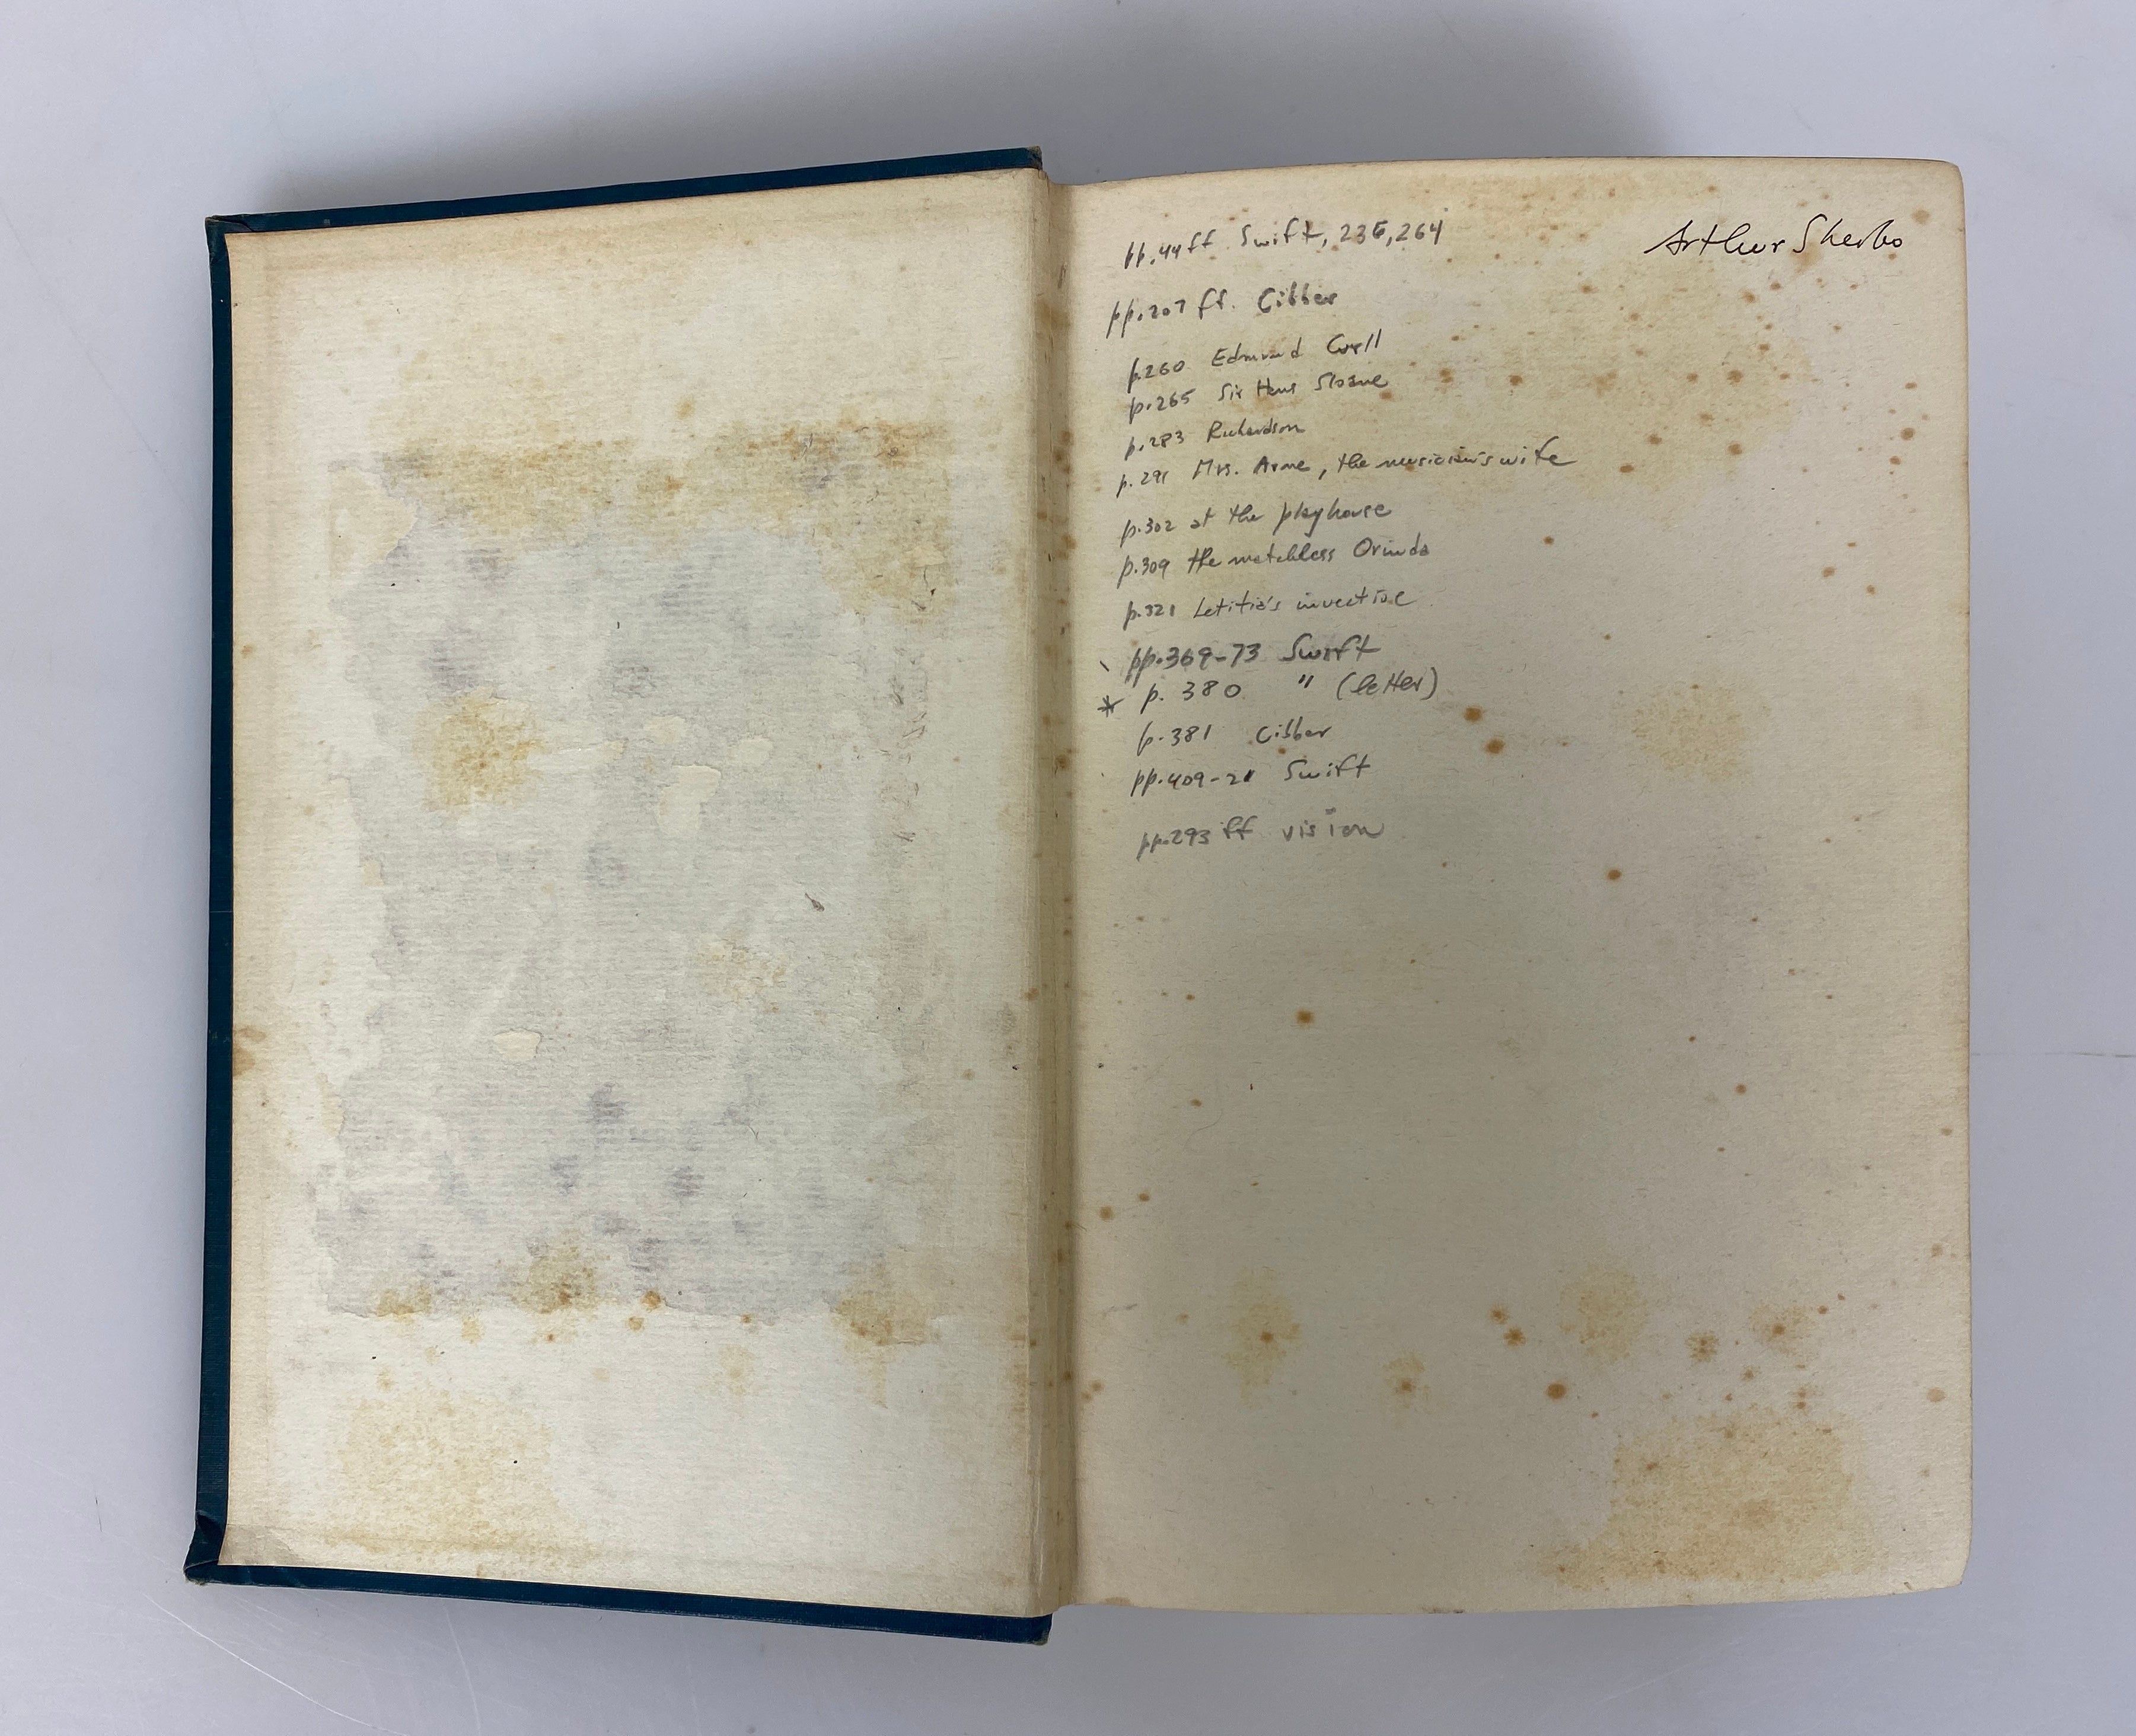 pp.44ff Swift, 236, 264
Arthur Sherbo
pp.207 ff. Cibber
p.260 Edmund Curll
p.265 Sir Hans Sloane
p.283 Richardson
p.291 Mrs. Arne, the musician's wife
p.302 at the playhouse
p.309 the matchless Orinda
p.321 Letitia's invective
\ pp.369-73 Swift
* p. 380 " (letter)
p.381 Cibber
pp.409-21 Swift
pp.293 ff vision